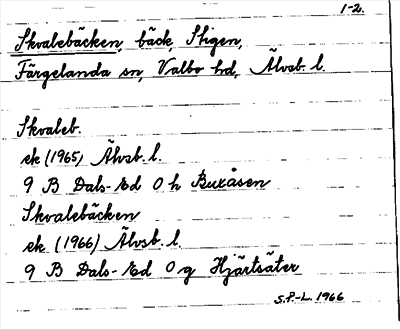 1-2.
Skvalebäcken, bäck, Stigen,
Färgelanda sn, Valbo hd, Älvsb. l.
Skvaleb.
ek (1965) Älvsb. l.
9 B Dals-Ed 0 h Buxåsen
Skvalebäcken
ek (1966) Älvsb. l.
9 B Dals-Ed 0 g Hjärtsäter
S.P-L. 1966